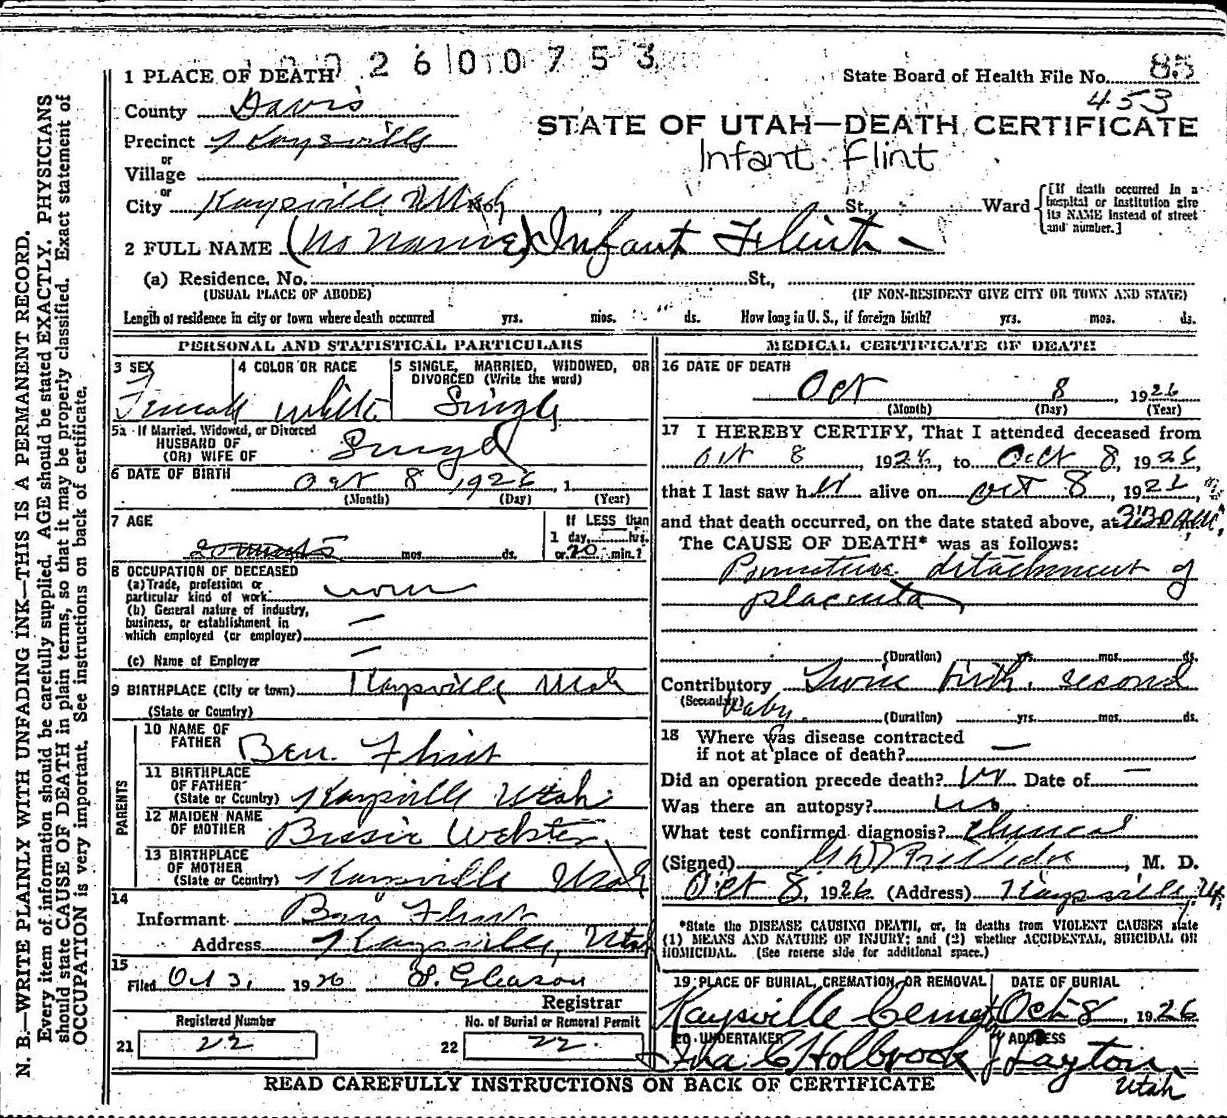 02600753
1 PLACE OF DEATH
State Board of Health File No. 85
453
County Davis
STATE OF UTAH—DEATH CERTIFICATE
Precinct Kaysville
Infant Flint
or
Village
or
City Kaysville Utah No. St., Ward [If death occurred in a hospital or institution give its NAME instead of street and number.]
2 FULL NAME (No Name) Infant Flint
(a) Residence. No. St.,
(USUAL PLACE OF ABODE) (IF NON-RESIDENT GIVE CITY OR TOWN AND STATE)
Length of residence in city or town where death occurred yrs. mos. ds. How long in U. S., if foreign birth? yrs. mos. ds.
PERSONAL AND STATISTICAL PARTICULARS
3 SEX 4 COLOR OR RACE 5 SINGLE, MARRIED, WIDOWED, OR DIVORCED (Write the word)
Female White Single
5a If Married, Widowed, or Divorced
HUSBAND OF
(OR) WIFE OF Single
6 DATE OF BIRTH Oct 8 1926, 1
(Month) (Day) (Year)
7 AGE If LESS than
1 day, hrs.
mos. ds. or 20 min.?
8 OCCUPATION OF DECEASED
(a) Trade, profession or
particular kind of work none
(b) General nature of industry,
business, or establishment in
which employed (or employer) —
(c) Name of Employer —
9 BIRTHPLACE (City or town) Kaysville Utah
(State or Country)
PARENTS
10 NAME OF FATHER Ben. Flint
11 BIRTHPLACE OF FATHER (State or Country) Kaysville Utah
12 MAIDEN NAME OF MOTHER Bessie Webster
13 BIRTHPLACE OF MOTHER (State or Country) Kaysville Utah
14
Informant Ben Flint
Address Kaysville, Utah
15
Filed Oct 31 1926 Gleason
Registrar
Registered Number No. of Burial or Removal Permit
21 22 22 22
MEDICAL CERTIFICATE OF DEATH
16 DATE OF DEATH
Oct 8, 1926
(Month) (Day) (Year)
17 I HEREBY CERTIFY, That I attended deceased from
Oct 8, 1926, to Oct 8, 1926
that I last saw her alive on Oct 8, 1926,
and that death occurred, on the date stated above, at 3:30 A.M.
The CAUSE OF DEATH* was as follows:
Premature detachment of
placenta
(Duration) yrs. mos. ds.
Contributory Twin birth. second
(Secondary) baby.
(Duration) yrs. mos. ds.
18 Where was disease contracted
if not at place of death? —
Did an operation precede death? no Date of —
Was there an autopsy? no
What test confirmed diagnosis? Clinical
(Signed) M. D.
Oct 8, 1926 (Address) Kaysville, Ut.
*State the DISEASE CAUSING DEATH, or, in deaths from VIOLENT CAUSES state
(1) MEANS AND NATURE OF INJURY; and (2) whether ACCIDENTAL, SUICIDAL OR
HOMICIDAL. (See reverse side for additional space.)
19 PLACE OF BURIAL, CREMATION, OR REMOVAL DATE OF BURIAL
Kaysville Cemet Oct-8, 1926
20 UNDERTAKER ADDRESS
Ira C Holbrook Layton
Utah
READ CAREFULLY INSTRUCTIONS ON BACK OF CERTIFICATE
N. B.—WRITE PLAINLY WITH UNFADING INK—THIS IS A PERMANENT RECORD.
Every item of information should be carefully supplied. AGE should be stated EXACTLY. PHYSICIANS
should state CAUSE OF DEATH in plain terms, so that it may be properly classified. Exact statement of
OCCUPATION is very important. See instructions on back of certificate.